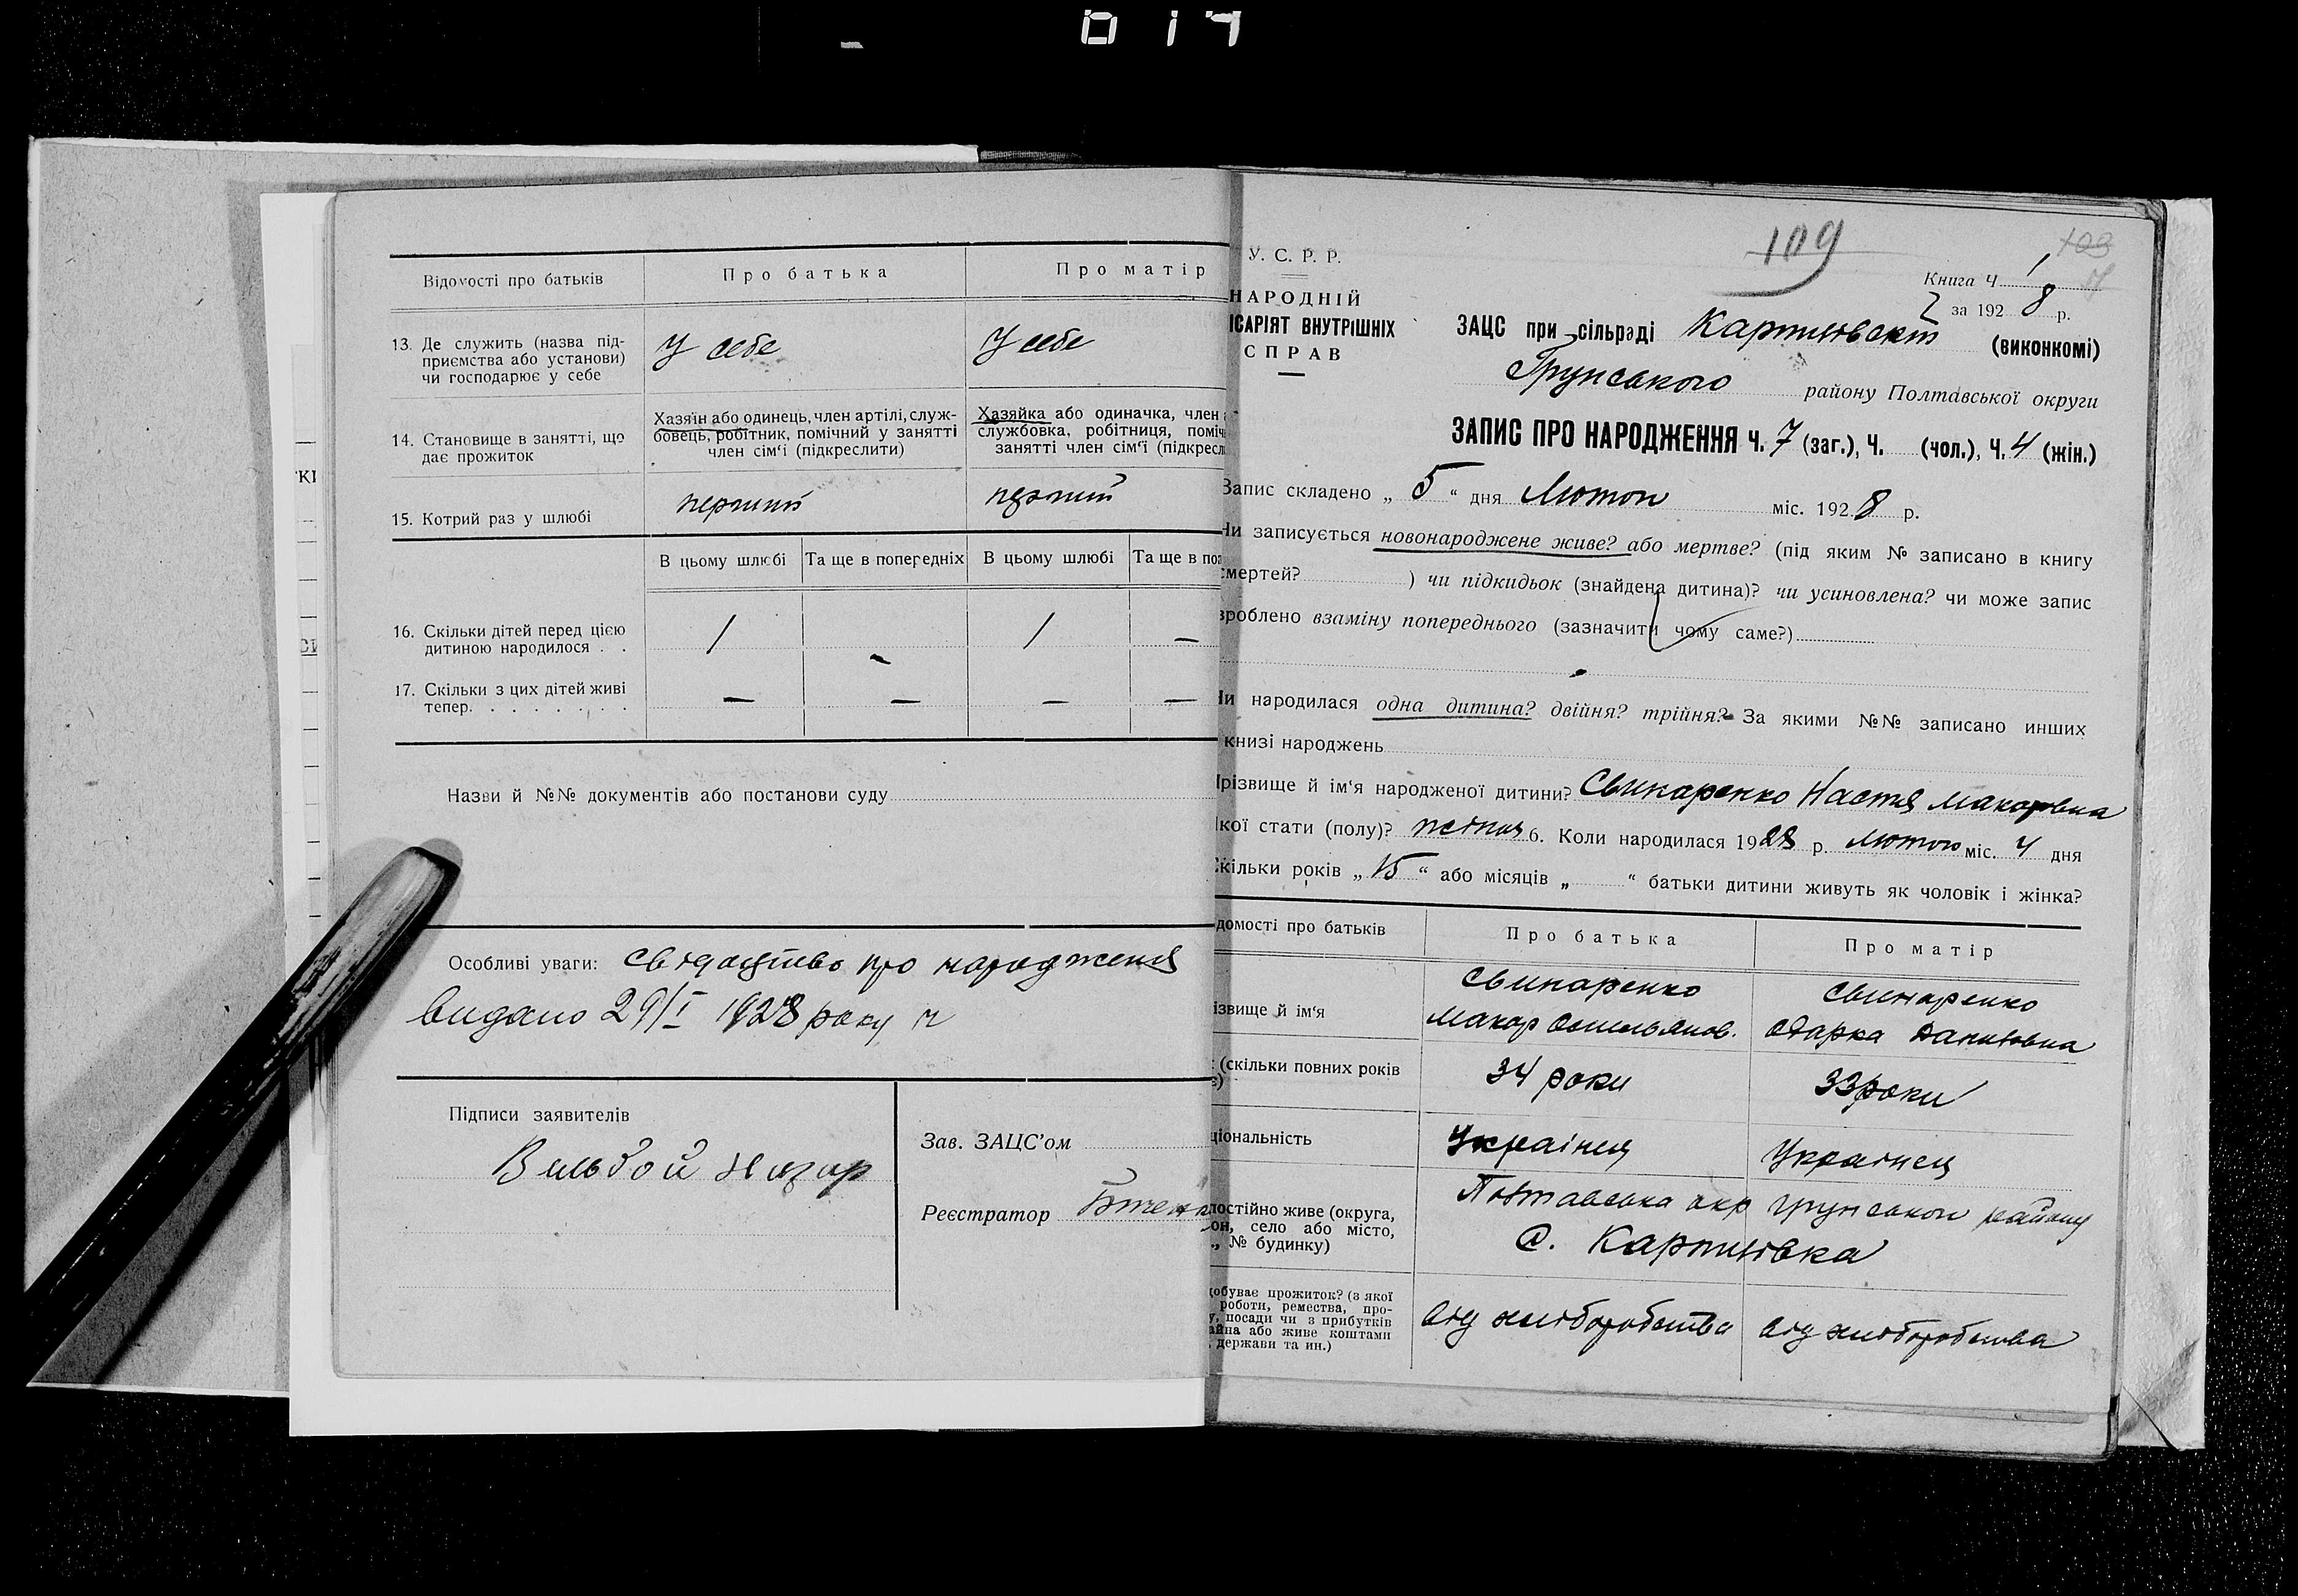 017
Відомості про батьків Про батька Про матір
13. Де служить (назва під-
приємства або установи)
чи господарює у себе
У себе У себе
14. Становище в занятті, що
дає прожиток
Хазяїн або одинець, член артілі, служ-
бовець, робітник, помічний у занятті
член сім'ї (підкреслити)
Хазяйка або одиначка, член
службовка, робітниця, поміч
занятті член сім'ї (підкресл
15. Котрий раз у шлюбі
перший перший
В цьому шлюбі Та ще в попередніх В цьому шлюбі Та ще в поп
16. Скільки дітей перед цією
дитиною народилося . .
/ - / —
17. Скільки з цих дітей живі
тепер. . . . . . . .
— — — —
Назви й №№ документів або постанови суду
Особливі уваги: свідоцтво про народження
видано 29/I 1928 року
Підписи заявителів
Зав. ЗАЦС'ом
Реєстратор
109
103
У. С. Р. Р.
НАРОДНІЙ
ІСАРІЯТ ВНУТРІШНІХ
СПРАВ
Книга Ч 1
за 1928 р.
ЗАЦС при сільраді (виконкомі)
Грунського району Полтавської округи
ЗАПИС ПРО НАРОДЖЕННЯ Ч. 7 (заг.), Ч. (чол.), Ч. 4 (жін.)
Запис складено „ 5 “ дня міс. 1928 р.
Чи записується новонароджене живе? або мертве? (під яким № записано в книгу
смертей? ) чи підкидьок (знайдена дитина)? чи усиновлена? чи може запис
зроблено взаміну попереднього (зазначити чому саме?)
Чи народилася одна дитина? двійня? трійня? За якими №№ записано инших
книзі народжень
різвище й ім'я народженої дитини? Свинаренко Настя Макаровна
кої стати (полу)? жіноч 6. Коли народилася 1928 р. лютого міс. 4 дня
кільки років „ 15 “ або місяців „ “ батьки дитини живуть як чоловік і жінка?
домості про батьків Про батька Про матір
ізвище й ім'я
Свинаренко
Макар
Свинаренко
Одарка Даниловна
(скільки повних років
34 роки 33 роки
ціональність
Українец Українец
постійно живе (округа,
он, село або місто,
., № будинку)
Полтавська окр Грунськой району
С. Карпилівка
добуває прожиток? (з якої
роботи, ремества, про-
у, посади чи з прибутків
айна або живе коштами
держави та ин.)
від хліборобства від хліборобства